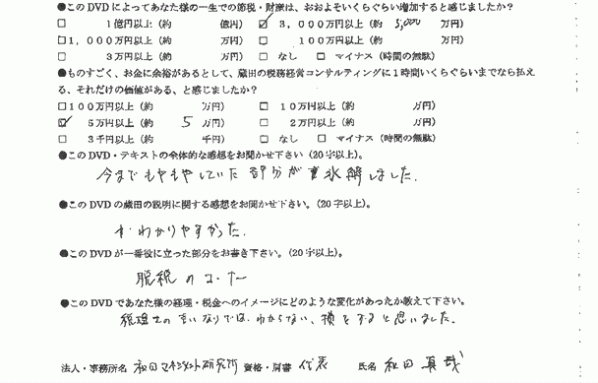 ●このDVDによってあなた様の一生での節税・財産は、おおよそいくらぐらい増加すると感じましたか?
□1億円以上(約 億円) ☑3,000万円以上(約 5,000 万円)
□1,000万円以上(約 万円) □100万円以上(約 万円)
□3万円以上(約 万円) □なし □マイナス(時間の無駄)
●ものすごく、お金に余裕があるとして、蔵田の税務経営コンサルティングに1時間いくらぐらいまでなら払え
る、それだけの価値がある、と感じましたか?
□100万円以上(約 万円) □10万円以上(約 万円)
☑5万円以上(約 5 万円) □2万円以上(約 万円)
□3千円以上(約 千円) □なし □マイナス(時間の無駄)
●このDVD・テキストの全体的な感想をお聞かせ下さい(20字以上)。
今までもやもやしていた部分が氷解しました.
●このDVDの蔵田の説明に関する感想をお聞かせ下さい。(20字以上)。
わかりやすかった.
●このDVDが一番役に立った部分をお書き下さい。(20字以上)。
脱税の
●このDVDであなた様の経理・税金へのイメージにどのような変化があったか教えて下さい。
税理士の言いなりでは、わからない、損をすると思いました。
法人・事務所名 和田マネジメント研究所 資格・肩書 代表 氏名 和田 眞哉